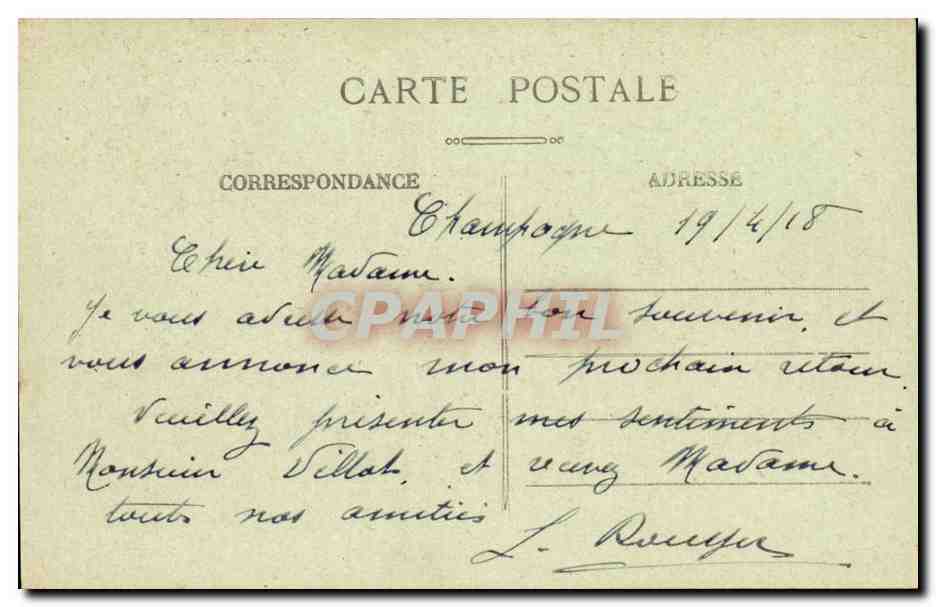 CARTE POSTALE
CORRESPONDANCE
ADRESSE
Champagne 19/4/18
Chère Madame.
Je vous adresse notre bon souvenir, et
vous annonce mon prochain retour.
Veuillez présenter mes sentiments à
Monsieur Villot, et recevez Madame.
touts nos amitiés
L.
CPAPHIL